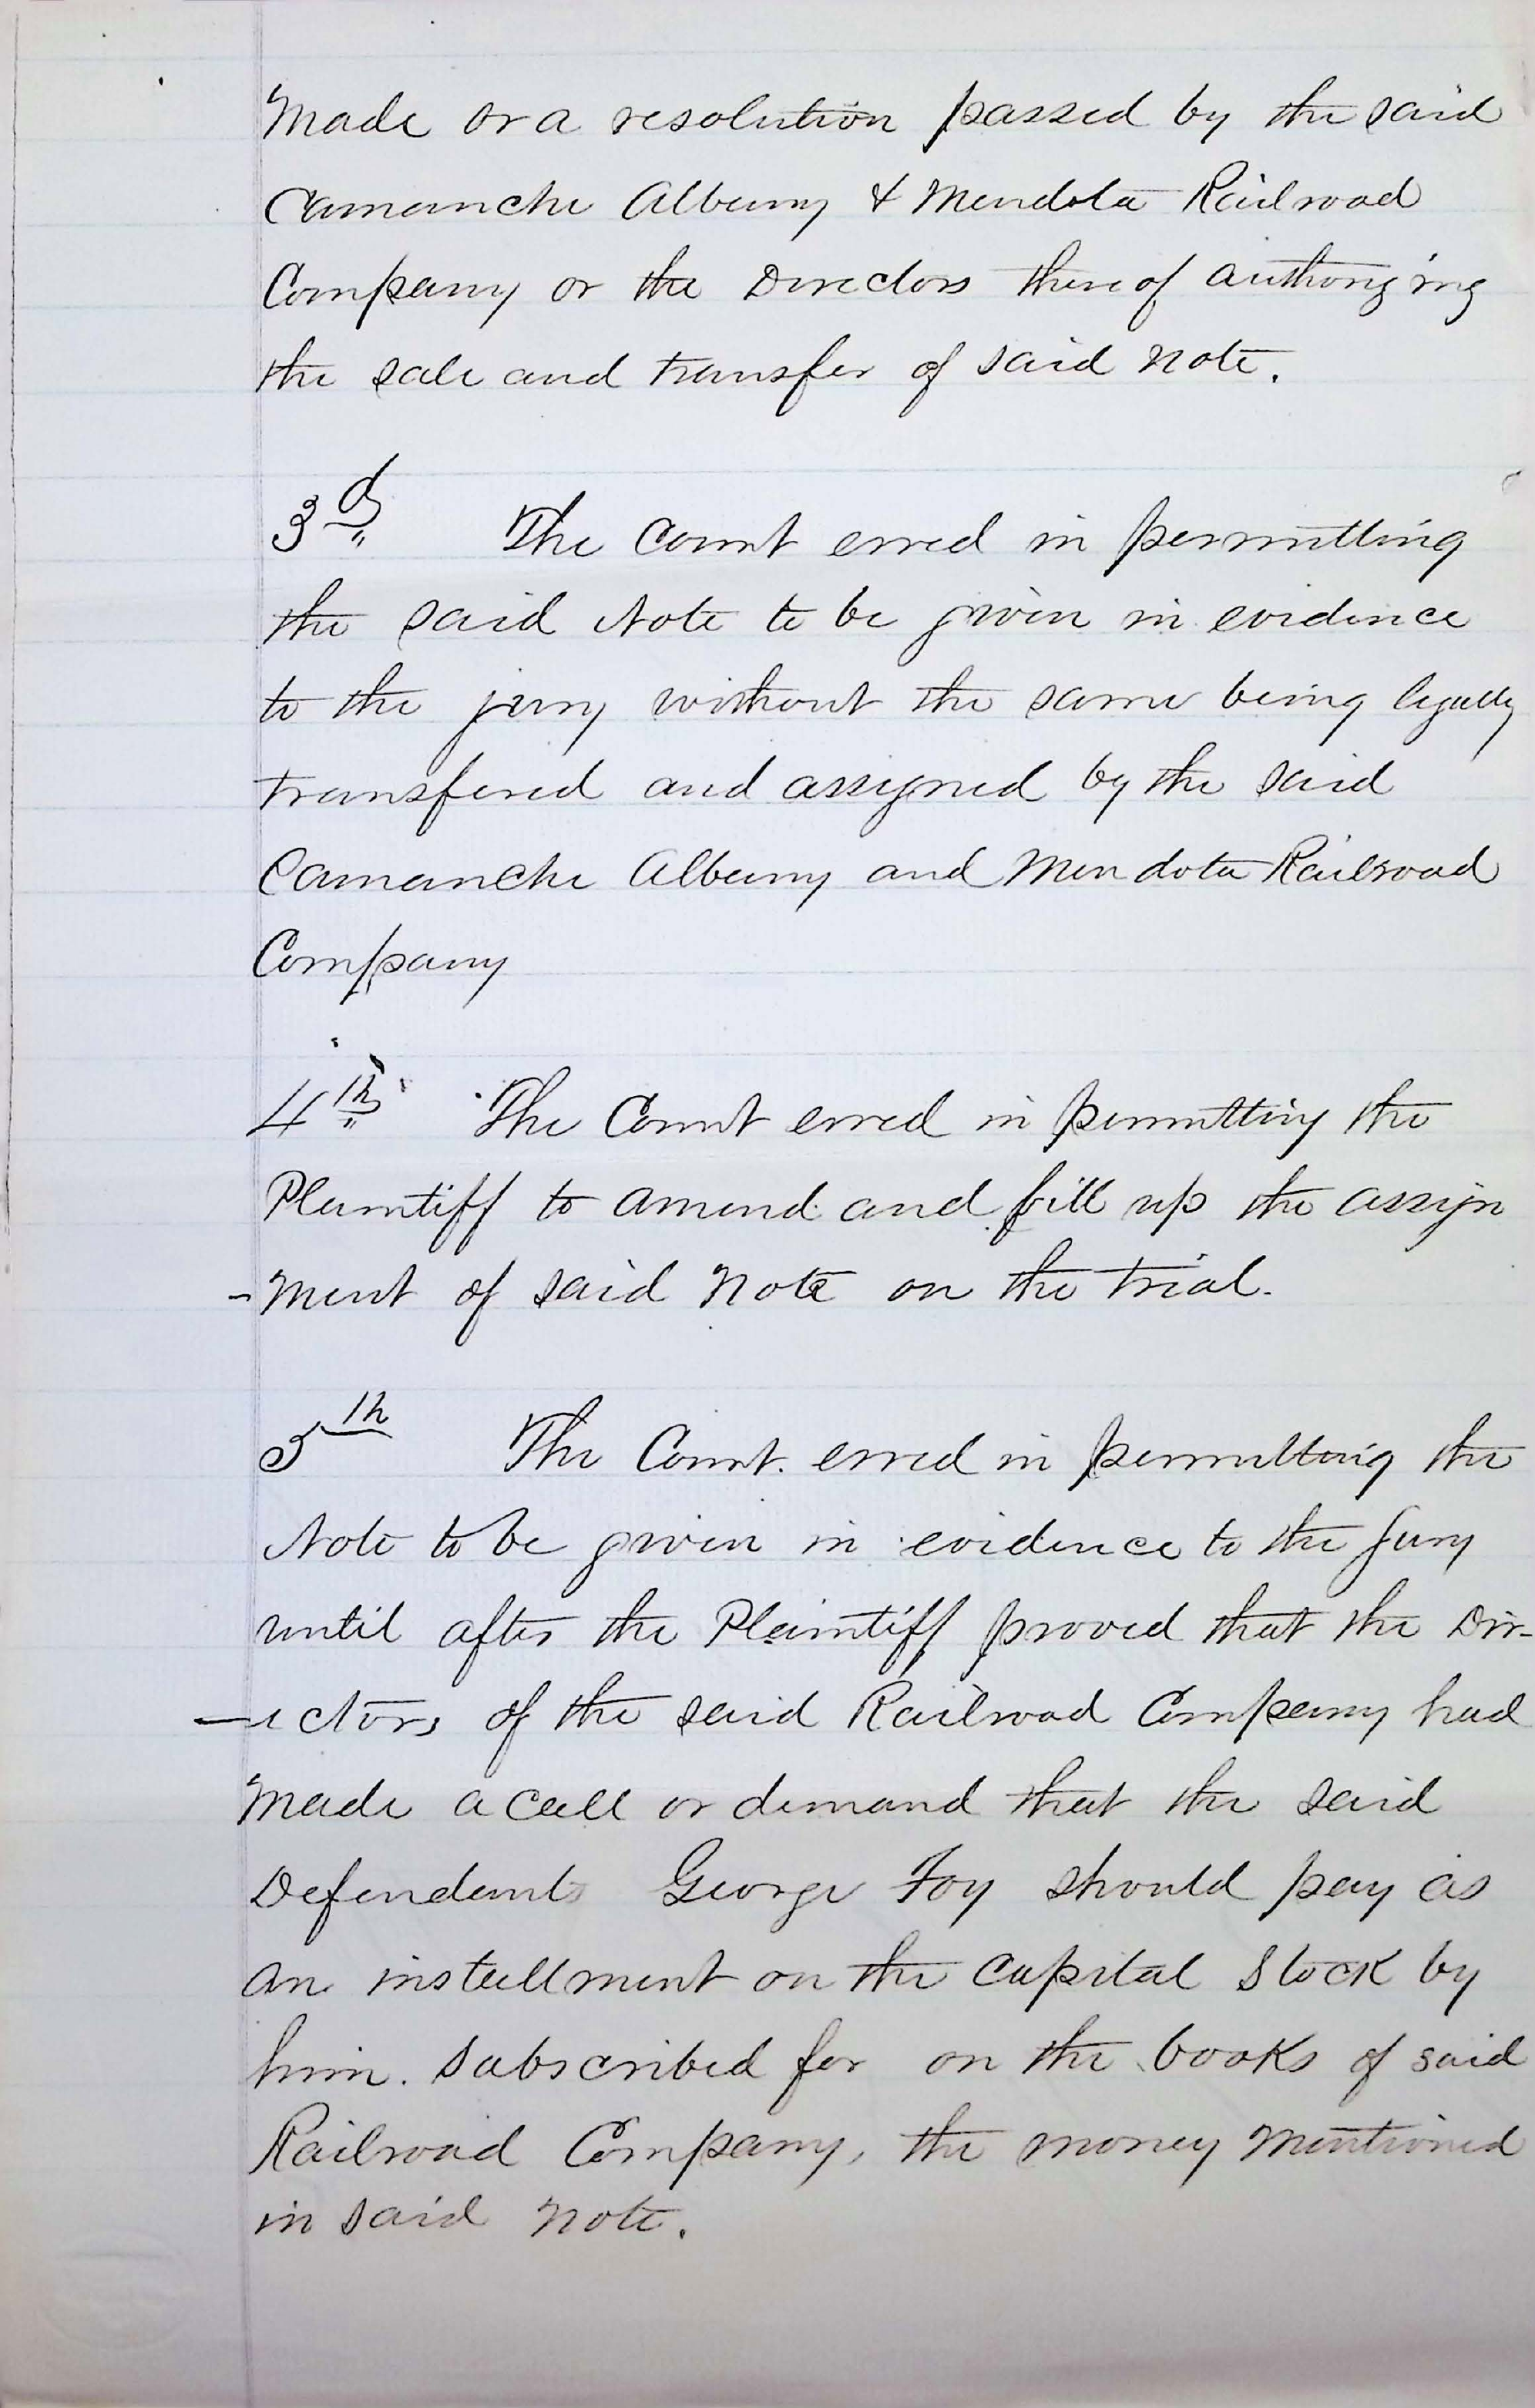 Made or a resolution passed by the said
Camanche Albany & Mendota Railroad
Company or the Directors thereof authorizing
the sale and transfer of said Note.
3d The Court erred in permitting
the said Note to be given in evidence
to the jury without the same being legally
transfered and assigned by the said
Camanche Albany and Mendota Railroad
Company
4th The Court erred in permitting the
Plaintiff to amend and fill up the assign
-ment of said Note on the trial.
5th The Court erred in permitting the
Note to be given in evidence to the Jury
until after the Plaintiff proved that the Dir-
-ectors of the said Railroad Company had
Made a call or demand that the said
Defendant George Foy should pay as
an installment on the Capital Stock by
him. Subscribed for on the books of said
Railroad Company, the money Mentioned
in said Note.